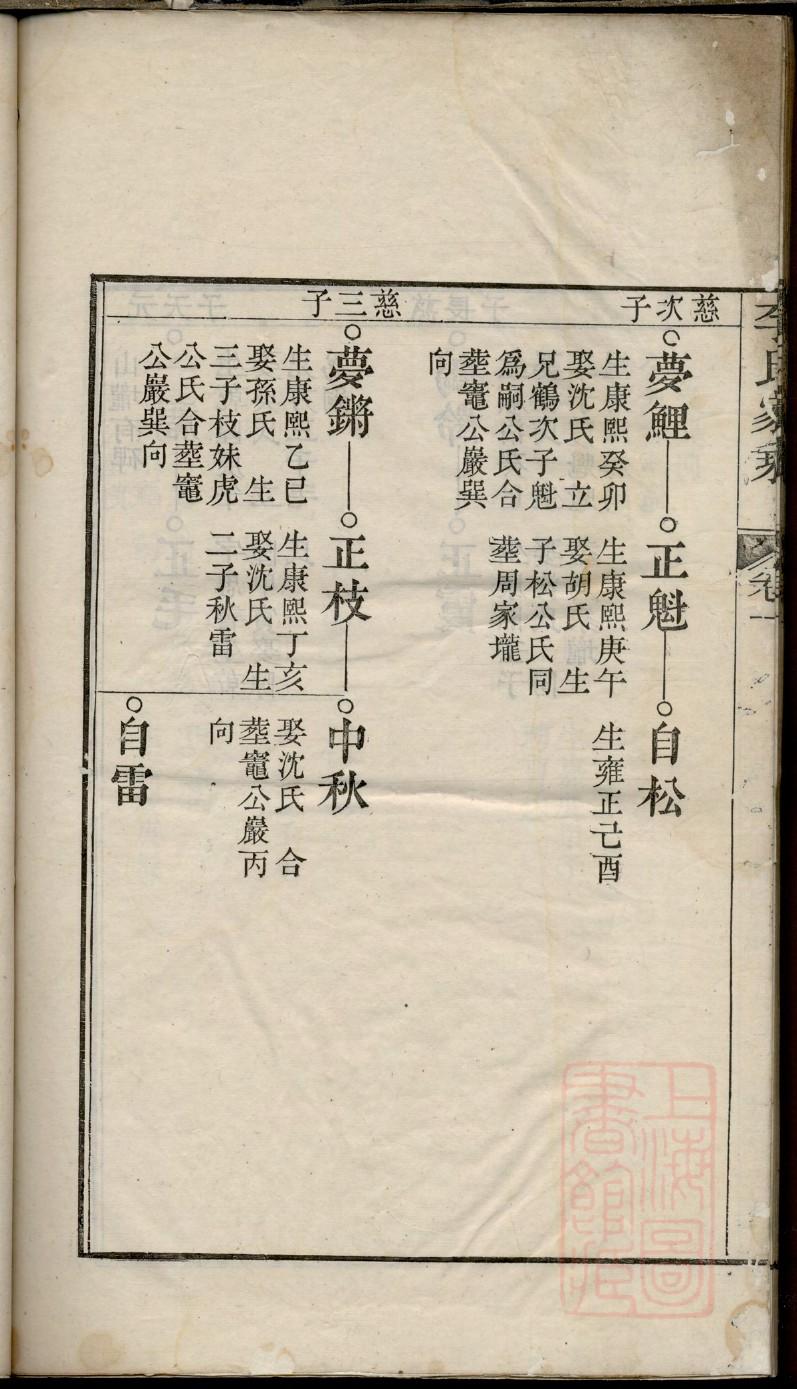 李氏家乘
卷一
慈次子
夢鯉
生康熙癸卯
娶沈氏 立
兄鶴次子魁
爲嗣公氏合
塟竈公巖巽
向
正魁
生康熙庚午
娶胡氏 生
子松公氏同
塟周家壠
自松
生雍正己酉
慈三子
夢鏘
生康熙乙巳
娶孫氏 生
三子枝妹虎
公氏合塟竈
公巖巽向
正枝
生康熙丁亥
娶沈氏 生
二子秋雷
中秋
娶沈氏 合
塟竈公巖丙
向
自雷
上海圖
書館藏